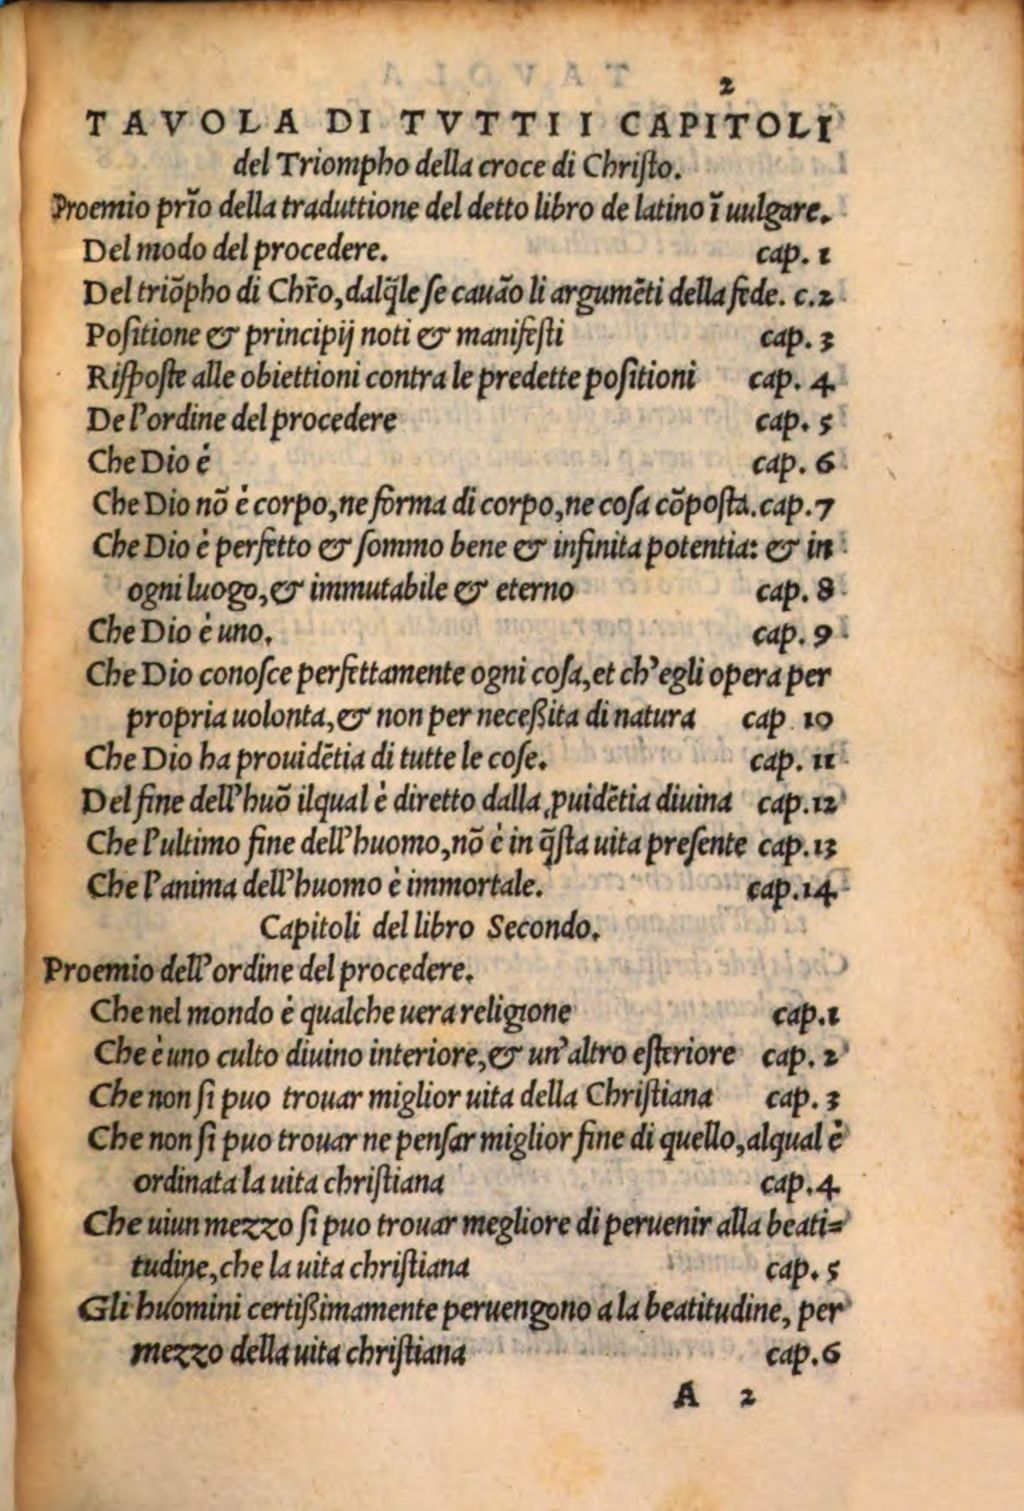 2
TAVOLA DI TVTTI I CAPITOLI
del Triompho della croce di Chriſto.
Proemio prĩo della traduttione del detto libro de latino ĩ uulgare.
Del modo del procedere. cap. 1
Del triõpho di Chr̃o, dalq̃le ſe cauão li argumẽti della fede. c.2
Poſitione & principij noti & manifeſti cap. 3
Riſpoſte alle obiettioni contra le predette poſitioni cap. 4
De l'ordine del procedere cap. 5
Che Dio è cap. 6
Che Dio nõ è corpo, ne forma di corpo, ne coſa cõpoſta. cap.7
Che Dio è perfetto & ſommo bene & infinita potentia: & in
ogni luogo, & immutabile & eterno cap. 8
Che Dio è uno. cap. 9
Che Dio conoſce perfettamente ogni coſa, et ch'egli opera per
propria uolonta, & non per neceßita di natura cap. 10
Che Dio ha prouidẽtia di tutte le coſe. cap. 11
Del fine dell'huõ ilqual è diretto dalla ꝓuidẽtia diuina cap.12
Che l'ultimo fine dell'huomo, nõ è in q̃ſta uita preſente cap.13
Che l'anima dell'huomo è immortale. cap.14
Capitoli del libro Secondo.
Proemio dell'ordine del procedere.
Che nel mondo è qualche uera religione cap.1
Che è uno culto diuino interiore, & un'altro eſteriore cap. 2
Che non ſi puo trouar miglior uita della Chriſtiana cap. 3
Che non ſi puo trouar ne penſar miglior fine di quello, alqual è
ordinata la uita chriſtiana cap.4
Che uiun mezzo ſi puo trouar megliore di peruenir alla beati=
tudine, che la uita chriſtiana cap. 5
Gli huomini certißimamente peruengono a la beatitudine, per
mezzo della uita chriſtiana cap.6
A 2